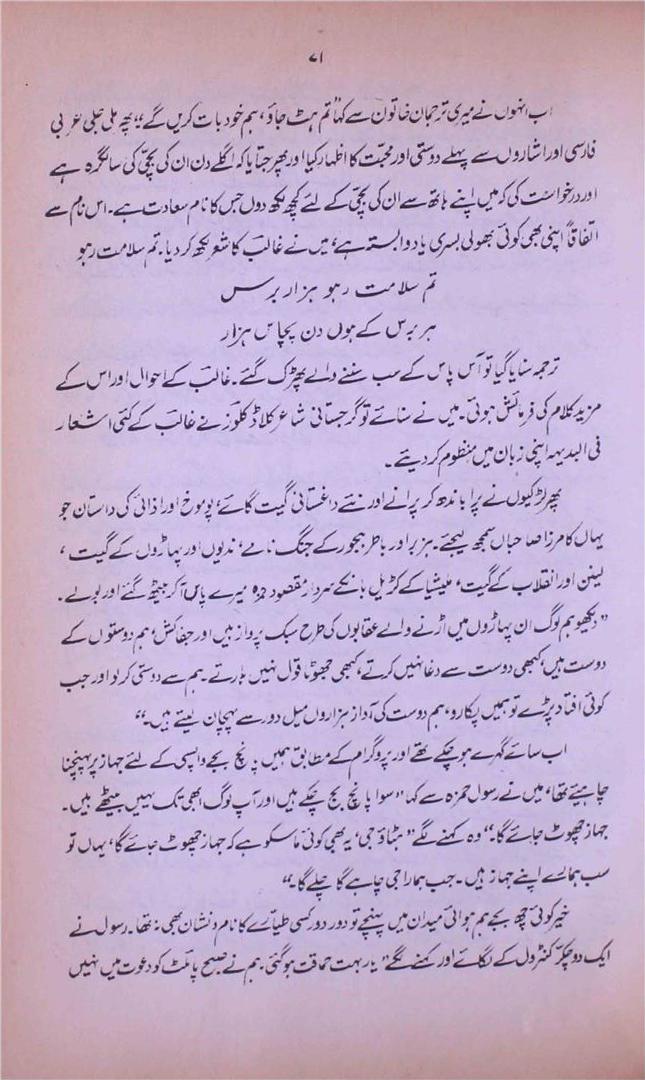 ۷۱
اب انہوں نے میری ترجمان خاتون سے کہا "تم ہٹ جاؤ، ہم خود بات کریں گے" پھر ملی جلی عربی
فارسی اور اشاروں سے پہلے دوستی اور محبت کا اظہار کیا اور پھر جتایا کہ اگلے دن ان کی بچی کی سالگرہ ہے
اور درخواست کی کہ میں اپنے ہاتھ سے ان کی بچی کے لئے کچھ لکھ دوں جس کا نام سعادت ہے۔ اس نام سے
اتفاقاً اپنی بھی کوئی بھولی بسری یاد وابستہ ہے، میں نے غالبؔ کا شعر لکھ کر دیا۔ تم سلامت رہو
تم سلامت رہو ہزار برس
ہر برس کے ہوں دن پچاس ہزار
ترجمہ سنایا گیا تو آس پاس کے سب سننے والے پھڑک گئے۔ غالبؔ کے احوال اور اس کے
مزید کلام کی فرمائش ہوئی۔ میں نے سنائے تو گرجستانی شاعر کلاڈ کلوز نے غالبؔ کے کئی اشعار
فی البدیہہ اپنی زبان میں منظوم کر دیئے۔
پھر لڑکیوں نے پرا باندھ کر پرانے اور نئے داغستانی گیت گائے، پوموخ اور اذائی کی داستان جو
یہاں کا مرزا صاحباں سمجھ لیجئے۔ ہزبر اور باطر بیجور کے جنگ نامے، ندیوں اور پہاڑوں کے گیت،
لینن اور انقلاب کے گیت، ملیشیا کے کڑیل بانکے سردار مقصود حمزہ میرے پاس آ کر بیٹھ گئے اور بولے۔
"دیکھو ہم لوگ ان پہاڑوں میں اڑنے والے عقابوں کی طرح سبک پرواز ہیں اور جفاکش، ہم دوستوں کے
دوست ہیں، کبھی دوست سے دغا نہیں کرتے، کبھی جھوٹا قول نہیں ہارتے۔ ہم سے دوستی کر لو اور جب
کوئی افتاد پڑے تو ہمیں پکارو، ہم دوست کی آواز ہزاروں میل دور سے پہچان لیتے ہیں۔"
اب سائے گہرے ہو چکے تھے اور پروگرام کے مطابق ہمیں پانچ بجے واپسی کے لئے جہاز پر پہنچنا
چاہیئے تھا، میں نے رسول حمزہ سے کہا "سوا پانچ بج چکے ہیں اور آپ لوگ ابھی تک یہیں بیٹھے ہیں۔
جہاز چھوٹ جائے گا۔" وہ کہنے لگے "ہٹاؤ جی، یہ بھی کوئی ماسکو ہے کہ جہاز چھوٹ جائے گا، یہاں تو
سب ہمارے اپنے جہاز ہیں۔ جب ہمارا جی چاہے گا چلے گا۔"
خیر کوئی چھ بجے ہم ہوائی میدان میں پہنچے تو دور دور کسی طیارے کا نام و نشان بھی نہ تھا۔ رسول نے
ایک دو چکر کنٹرول کے لگائے اور کہنے لگے "یار بہت حماقت ہو گئی، ہم نے صبح پائلٹ کو دعوت میں نہیں